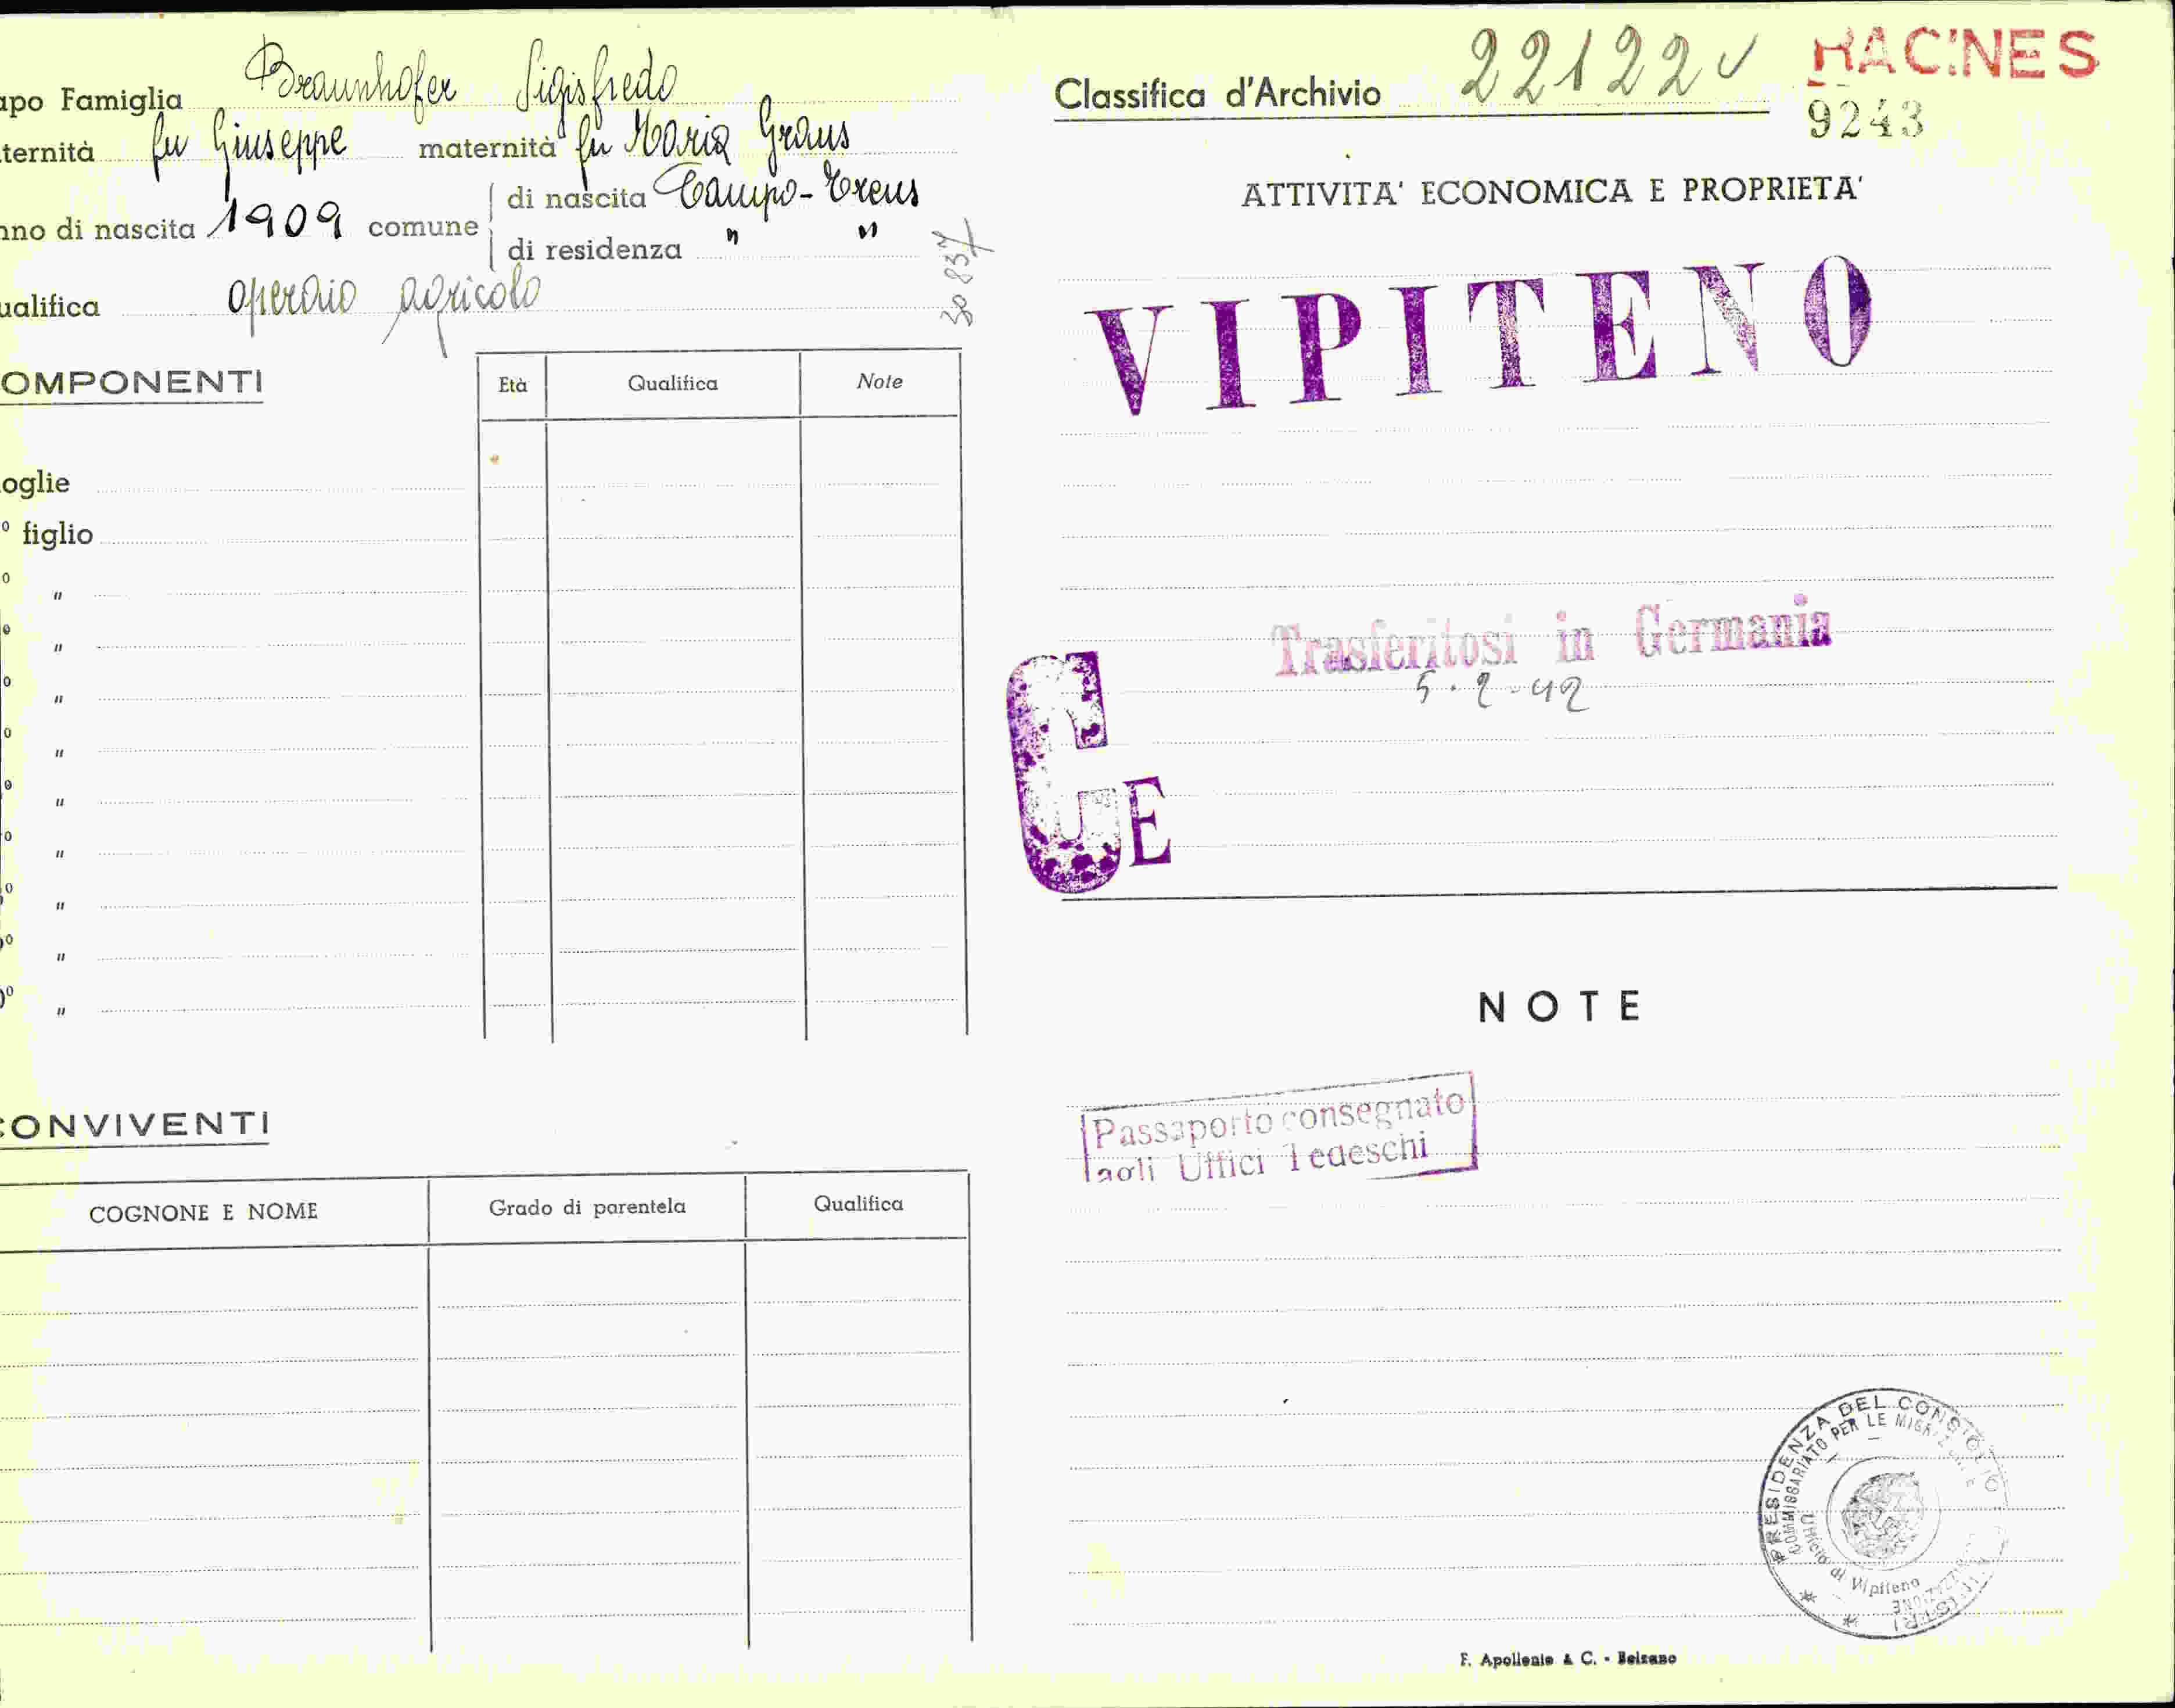 apo Famiglia Braunhofer Sigisfredo
ternità fu Giuseppe maternità fu Maria Graus
nno di nascita 1909 comune di nascita Campo-Trens
di residenza " "
30837
ualifica operaio agricolo
OMPONENTI
Età Qualifica Note
oglie
° figlio
"
"
"
"
"
"
"
"
"
CONVIVENTI
COGNONE E NOME Grado di parentela Qualifica
Classifica d'Archivio 22122 ✓
RACINES
9243
ATTIVITA' ECONOMICA E PROPRIETA'
VIPITENO
Trasferitosi in Germania
5.2.42
C E
NOTE
Passaporto consegnato
agli Uffici Tedeschi
PRESIDENZA DEL CONSIGLIO
COMMISSARIATO PER LE MIGRAZIONI E
Ufficio di Vipiteno
F. Apollonio & C. - Bolzano